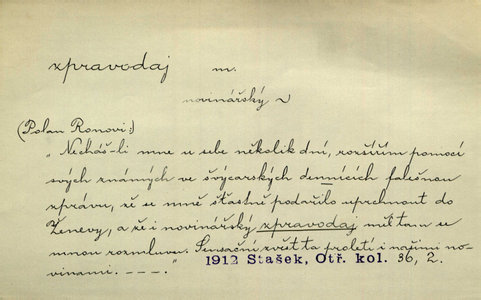 zpravodaj m.
novinářský ~
(Polan Ronovi:)
"Necháš-li mne u sebe několik dní, rozšířím pomocí
svých známých ve švýcarských dennících falešnou
zprávu, že se mně šťastně podařilo uprchnout do
Ženevy, a že i novinářský zpravodaj měl tam se
mnou rozmluvu. Sensační zvěst ta proletí i našimi no-
vinami. – – – ."
1912 Stašek, Otř. kol. 36, 2.